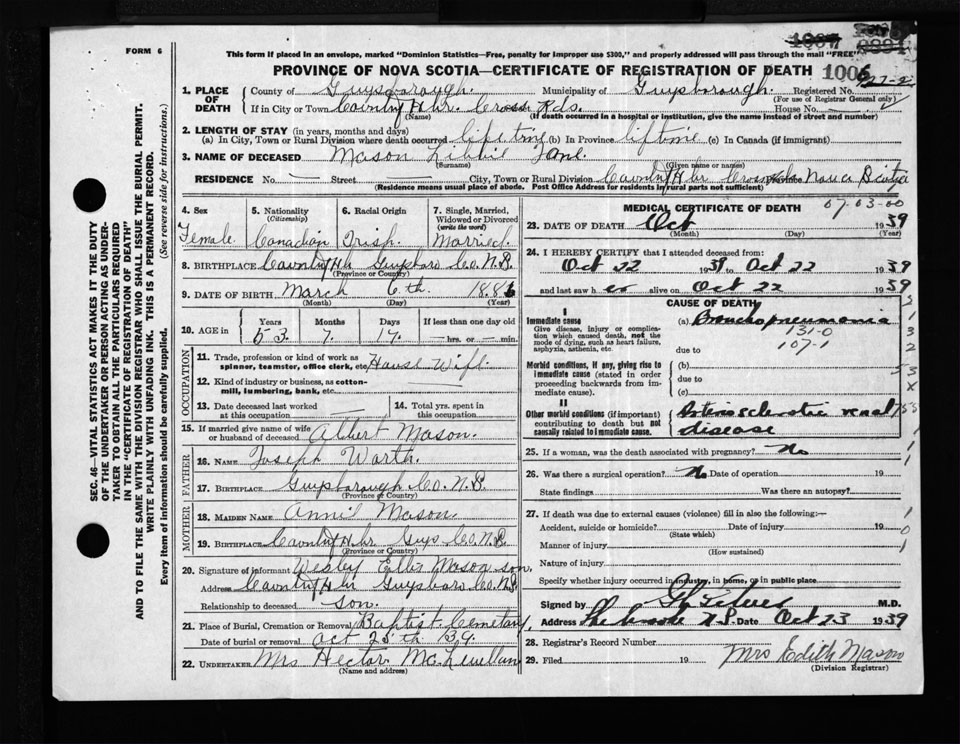 FORM 6
This form if placed in an envelope, marked "Dominion Statistics—Free, penalty for improper use $300," and properly addressed will pass through the mail "FREE"
PROVINCE OF NOVA SCOTIA—CERTIFICATE OF REGISTRATION OF DEATH 1006
1. PLACE OF DEATH
County of Guysborough. Municipality of Guysborough. Registered No.
(For use of Registrar General only)
If in City or Town Hbr. Cross Rds. House No.
(Name) (If death occurred in a hospital or institution, give the name instead of street and number)
2. LENGTH OF STAY (in years, months and days)
(a) In City, Town or Rural Division where death occurred life time (b) In Province (c) In Canada (if immigrant)
3. NAME OF DECEASED Mason Jane.
(Surname) (Given name or names)
RESIDENCE No. — Street — City, Town or Rural Division Hbr Nova Scotia
(Residence means usual place of abode. Post Office Address for residents in rural parts not sufficient)
4. Sex Female.
5. Nationality (Citizenship) Canadian
6. Racial Origin Irish.
7. Single, Married, Widowed or Divorced (write the word) Married.
8. BIRTHPLACE Hbr Guysboro Co. N.S.
(Province or Country)
9. DATE OF BIRTH March 6th. 1886
(Month) (Day) (Year)
10. AGE in Years 53. Months 7. Days 17. If less than one day old — hrs. or — min.
OCCUPATION
11. Trade, profession or kind of work as spinner, teamster, office clerk, etc. House Wife.
12. Kind of industry or business, as cotton-mill, lumbering, bank, etc.
13. Date deceased last worked at this occupation —
14. Total yrs. spent in this occupation
15. If married give name of wife or husband of deceased Albert Mason.
FATHER
16. NAME Joseph
17. BIRTHPLACE Guysborough Co. N.S.
(Province or Country)
MOTHER
18. MAIDEN NAME Annie Mason.
19. BIRTHPLACE Hbr Guys Co. N.S.
(Province or Country)
20. Signature of informant Wesley Mason son.
Address Hbr Guysboro Co. N.S.
Relationship to deceased son.
21. Place of Burial, Cremation or Removal Baptist Cemetary,
Date of burial or removal Oct 25th 39.
22. UNDERTAKER Mrs Hector
(Name and address)
MEDICAL CERTIFICATE OF DEATH 67-03-00
23. DATE OF DEATH Oct 1939
(Month) (Day) (Year)
24. I HEREBY CERTIFY that I attended deceased from:
Oct 22 1939 to Oct 22 1939
and last saw her alive on Oct 22 1939
CAUSE OF DEATH
I
Immediate cause
Give disease, injury or complication which caused death, not the mode of dying, such as heart failure, asphyxia, asthenia, etc.
(a) Bronchopneumonia
131-0
107-1
due to
Morbid conditions, if any, giving rise to immediate cause (stated in order proceeding backwards from immediate cause).
(b)
due to
(c)
II
Other morbid conditions (if important) contributing to death but not causally related to immediate cause.
Arteriosclerotic renal disease
25. If a woman, was the death associated with pregnancy? No
26. Was there a surgical operation? No Date of operation 19
State findings Was there an autopsy?
27. If death was due to external causes (violence) fill in also the following:—
Accident, suicide or homicide? Date of injury 19
(State which)
Manner of injury
(How sustained)
Nature of injury
Specify whether injury occurred in industry, in home, or in public place
Signed by M.D.
Address Sherbrooke N.S. Date Oct 23 1939
28. Registrar's Record Number
29. Filed 19 Mrs Edith Mason
(Division Registrar)
SEC. 46—VITAL STATISTICS ACT MAKES IT THE DUTY
OF THE UNDERTAKER OR PERSON ACTING AS UNDER-
TAKER TO OBTAIN ALL THE PARTICULARS REQUIRED
IN THE "CERTIFICATE OF REGISTRATION OF DEATH"
AND TO FILE THE SAME WITH THE DIVISION REGISTRAR WHO SHALL ISSUE THE BURIAL PERMIT.
WRITE PLAINLY WITH UNFADING INK. THIS IS A PERMANENT RECORD.
Every item of information should be carefully supplied. (See reverse side for instructions.)